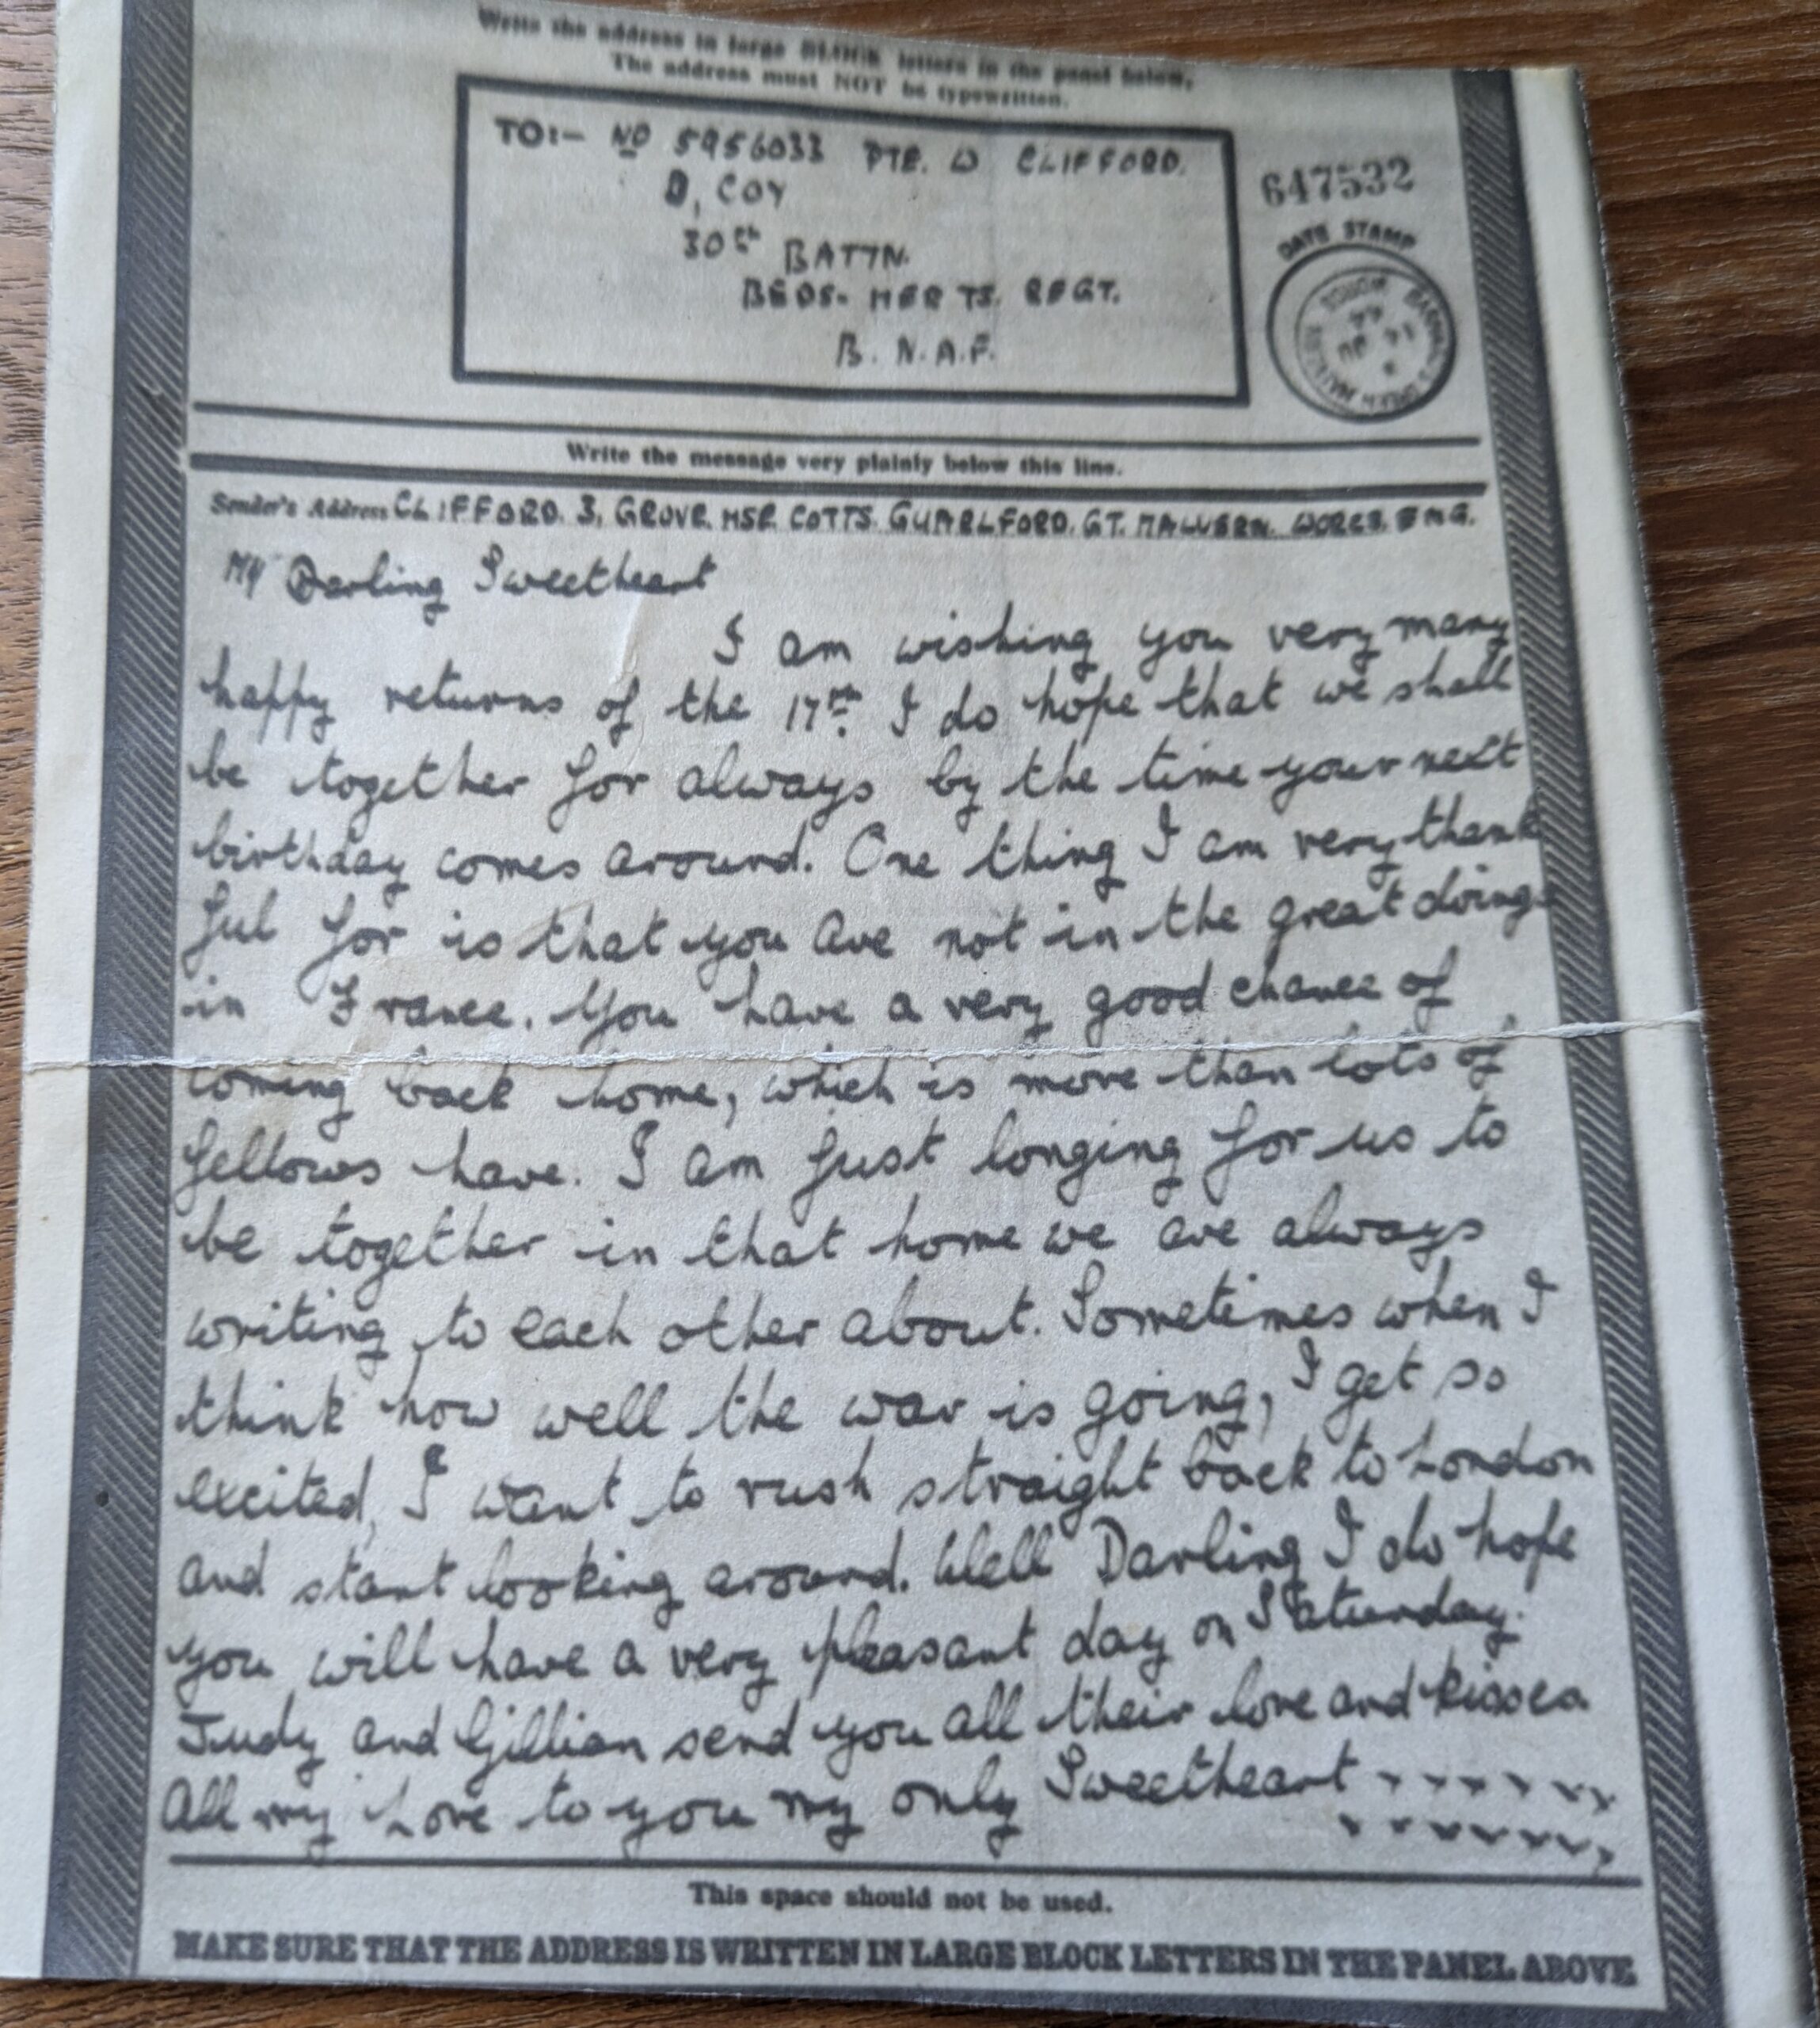 Write the address in large BLOCK letters in the panel below,
The address must NOT be typewritten.
TO:— No 5956033 PTE. W CLIFFORD.
D, COY
30th BATTN.
BEDS- HERTS. REGT.
B. N. A. F.
647532
DATE STAMP
Write the message very plainly below this line.
Sender's Address CLIFFORD. 3, GROVE. HSE. COTTS. GUARLFORD. GT. MALVERN. WORCS. ENG.
My Darling Sweetheart
I am wishing you very many
happy returns of the 17th. I do hope that we shall
be together for always by the time your next
birthday comes around. One thing I am very thank
ful for is that you are not in the great doings
in France. You have a very good chance of
coming back home, which is more than lots of
fellows have. I am just longing for us to
be together in that home we are always
writing to each other about. Sometimes when I
think how well the war is going, I get so
excited, I want to rush straight back to London
and start looking around. Well Darling I do hope
you will have a very pleasant day on Saturday.
Judy and Gillian send you all their love and kisses
All my Love to you my only Sweetheart x x x x x x x
x x x x x x x
This space should not be used.
MAKE SURE THAT THE ADDRESS IS WRITTEN IN LARGE BLOCK LETTERS IN THE PANEL ABOVE